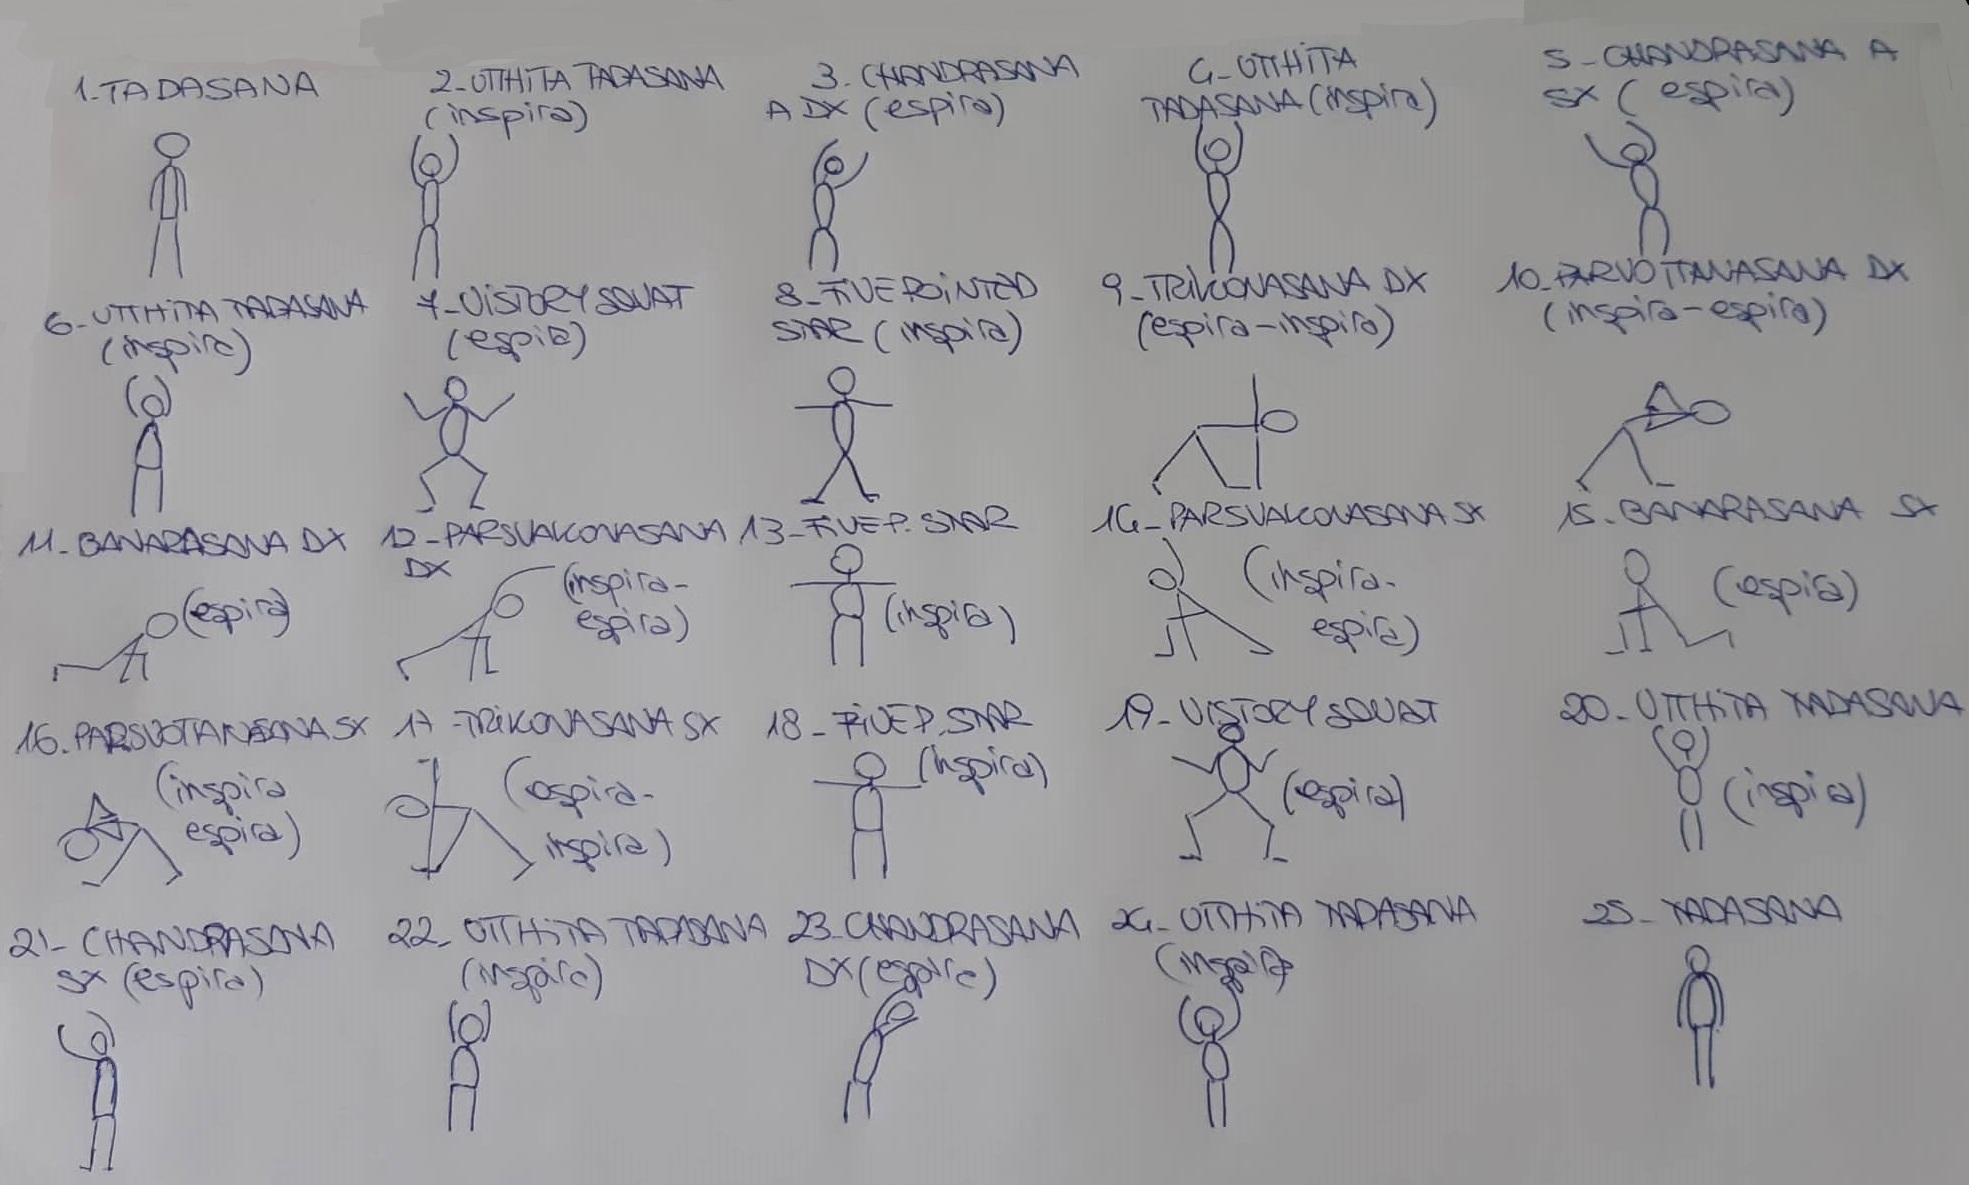 1-TADASANA
2-UTTHITA TADASANA
(inspira)
3-CHANDRASANA
A DX (espira)
4-UTTHITA
TADASANA (inspira)
5-CHANDRASANA A
SX (espira)
6-UTTHITA TADASANA
(inspira)
7-VISTORY SQUAT
(espira)
8-FIVE POINTED
STAR (inspira)
9-TRIKONASANA DX
(espira-inspira)
10-PARVOTTANASANA DX
(inspira-espira)
11-BANARASANA DX
(espira)
12-PARSVAKONASANA
DX
(inspira-
espira)
13-FIVE P. STAR
(inspira)
14-PARSVAKONASANA SX
(inspira-
espira)
15-BANARASANA SX
(espira)
16-PARSVOTTANASANA SX
(inspira
espira)
17-TRIKONASANA SX
(espira-
inspira)
18-FIVE P. STAR
(inspira)
19-VISTORY SQUAT
(espira)
20-UTTHITA TADASANA
(inspira)
21-CHANDRASANA
SX (espira)
22-UTTHITA TADASANA
(inspira)
23-CHANDRASANA
DX (espira)
24-UTTHITA TADASANA
(inspira)
25-TADASANA